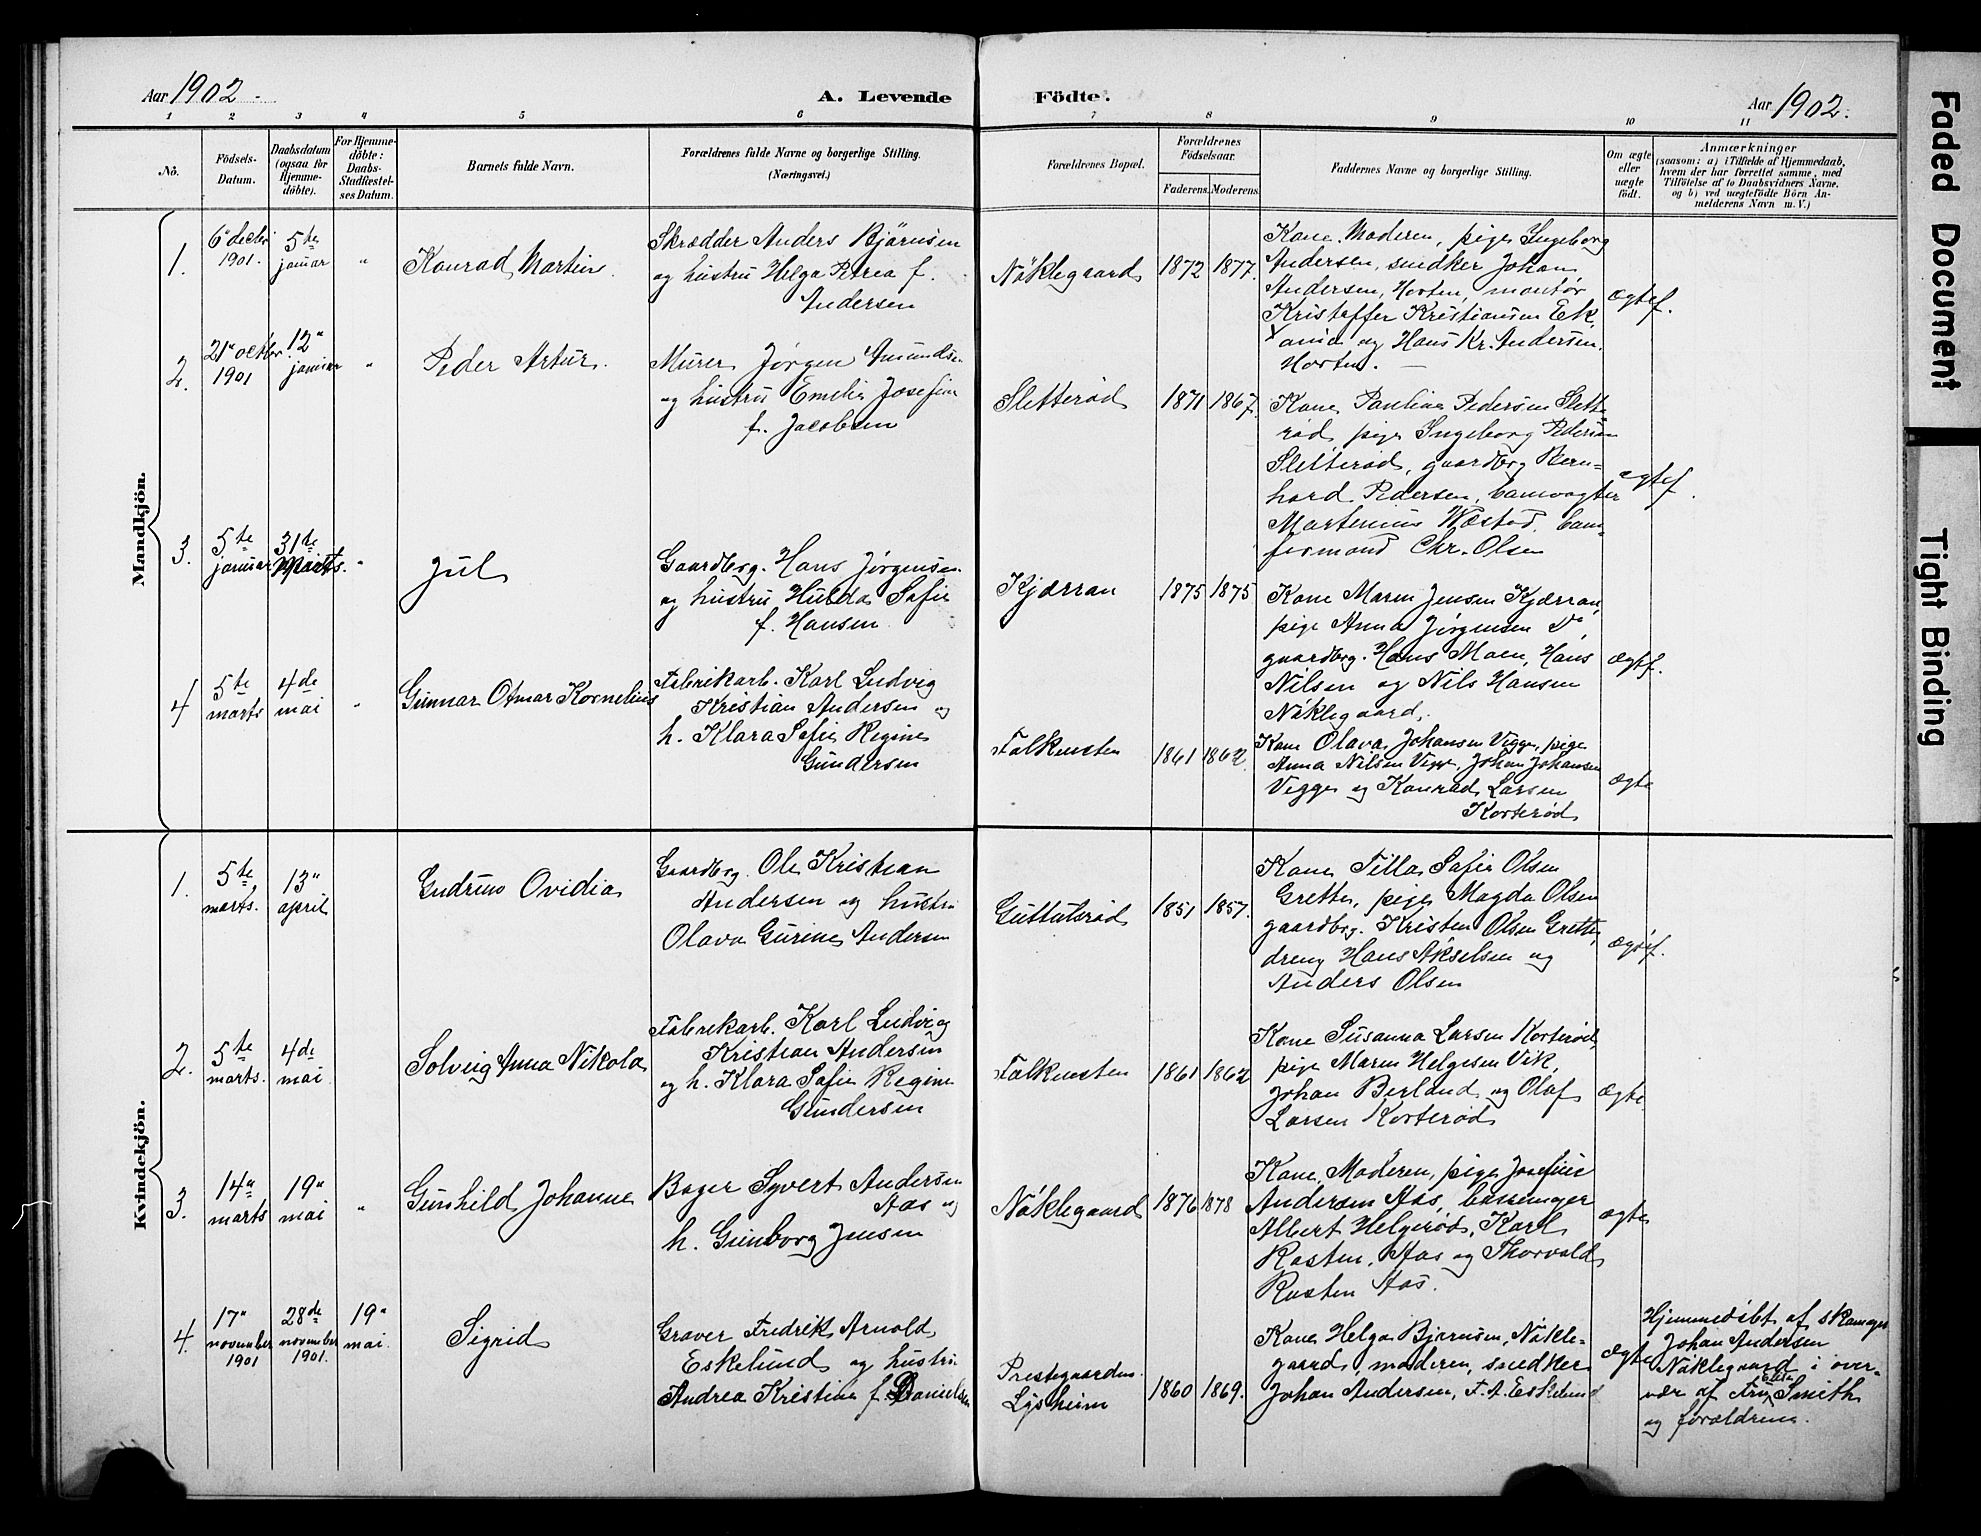 Aar 1902.
A. Levende Födte.
Aar 1902.
1 2 3 4 5 6 7 8 9 10 11
No.
Födsels-
Datum.
Daabsdatum
(ogsaa for
Hjemme-
döbte).
For Hjemme-
döbte:
Daabs-
Stadfæstel-
ses Datum.
Barnets fulde Navn.
Forældrenes fulde Navne og borgerlige Stilling.
(Næringsvei.)
Forældrenes Bopæl.
Forældrenes
Födselsaar.
Faderens. Moderens.
Faddernes Navne og borgerlige Stilling.
Om ægte
eller
uægte
födt.
Anmærkninger
(saasom: a) i Tilfælde af Hjemmedaab,
hvem der har forrettet samme, med
Tilföielse af to Daabsvidners Navne,
og b) ved uægtefödte Börn An-
melderens Navn m. V.)
Mandkjön.
1.
6" decbr.
1901.
5te
januar
"
Konrad Martin.
Skrædder Anders Bjørnsen
og hustru Helga Petrea f.
Andersen
Nøklegaard
1872
1877.
Kone Moderen, pige Ingeborg
Andersen, snedker Johan
Andersen, Horten, montør
Kristoffer Kristiansen Ek,
og Hans Kr. Andersen,
Horten.
ægtef.
2.
21" octbr.
1901
12"
januar
"
Peder Artur.
Murer Jørgen Amundsen
og hustru Emelie Josefine
f. Jacobsen
Sletterød
1871
1867.
Kone Pauline Pedersen Slette-
rød, pige Ingeborg Pedersen
Sletterød, gaardbrg. Bern-
hard Pedersen, banevogter
Martinius Wæstad, ban-
formand Chr. Olsen
ægtef.
3.
5te
januar
31te
Marts.
"
Jul
Gaardbrg. Hans Jørgensen
og hustru Hulda Sofie
f. Hansen
Kjærran
1875
1875
Kone Maren Jensen Kjærran,
pige Anna Jørgensen Do,
gaardbrg. Hans Moen, Hans
Nilsen og Nils Hansen
Nøklegaard.
ægtf.
4
5te
marts
4de
mai
"
Gunnar Otmar Kornelius
Fabrikarb. Karl Ludvig
Kristian Andersen og
h. Klara Sofie Regine
Gundersen
Falkensten
1861
1862.
Kone Olava Johansen Vigge, pige
Anna Nilsen Vigge, Johan Johansen
Vigge og Konrad Larsen
Korterød
ægte
Kvindekjön.
1.
5te
marts.
13"
april
Gudrun Ovidia
Gaardbrg. Ole Kristian
Andersen og hustru
Olava Gurine Andersen
Guttulsrød
1851
1857.
Kone Tilla Sofie Olsen
Grette, pige Magda Olsen
gaardbrg. Kristen Olsen Grette,
dreng Hans Akselsen og
Anders Olsen
ægtef.
2.
5te
marts.
4de
mai
Solveig Anna Nikola
Fabrikarb. Karl Ludvig
Kristian Andersen
og h. Klara Sofie Regine
Gundersen
Falkensten
1861
1862
Kone Susanna Larsen Korterød,
pige Maren Helgesen Vik,
Johan Berland og Olaf
Larsen Korterød
ægte
3.
14"
marts
19"
mai
"
Gunhild Johanne
Bager Syvert Andersen
Aas og
h. Gunborg Jensen
Nøklegaard
1876
1878
Kone Moderen, pige Josefine
Andersen Aas,
Albert Helgerød, Karl
Rosten, Aas og Thorvald
Rosten Aas.
ægte
4.
17"
november
1901
28de
november
1901.
19"
mai
Sigrid
Graver Fredrik Arnold
Eskelund og hustru
Andrea Kristine f. Danielsen
Prestegaarden
Lysheim
1860
1869.
Kone Helga Bjørnsen, Nøkle-
gaard, moderen, snedker
Johan Andersen, F. A. Eskelund
ægte
Hjemmedøbt af skomager
Johan Andersen
Nøklegaard i over-
vær af Frk. Smith
og forældrene.
Faded Document
Tight Binding